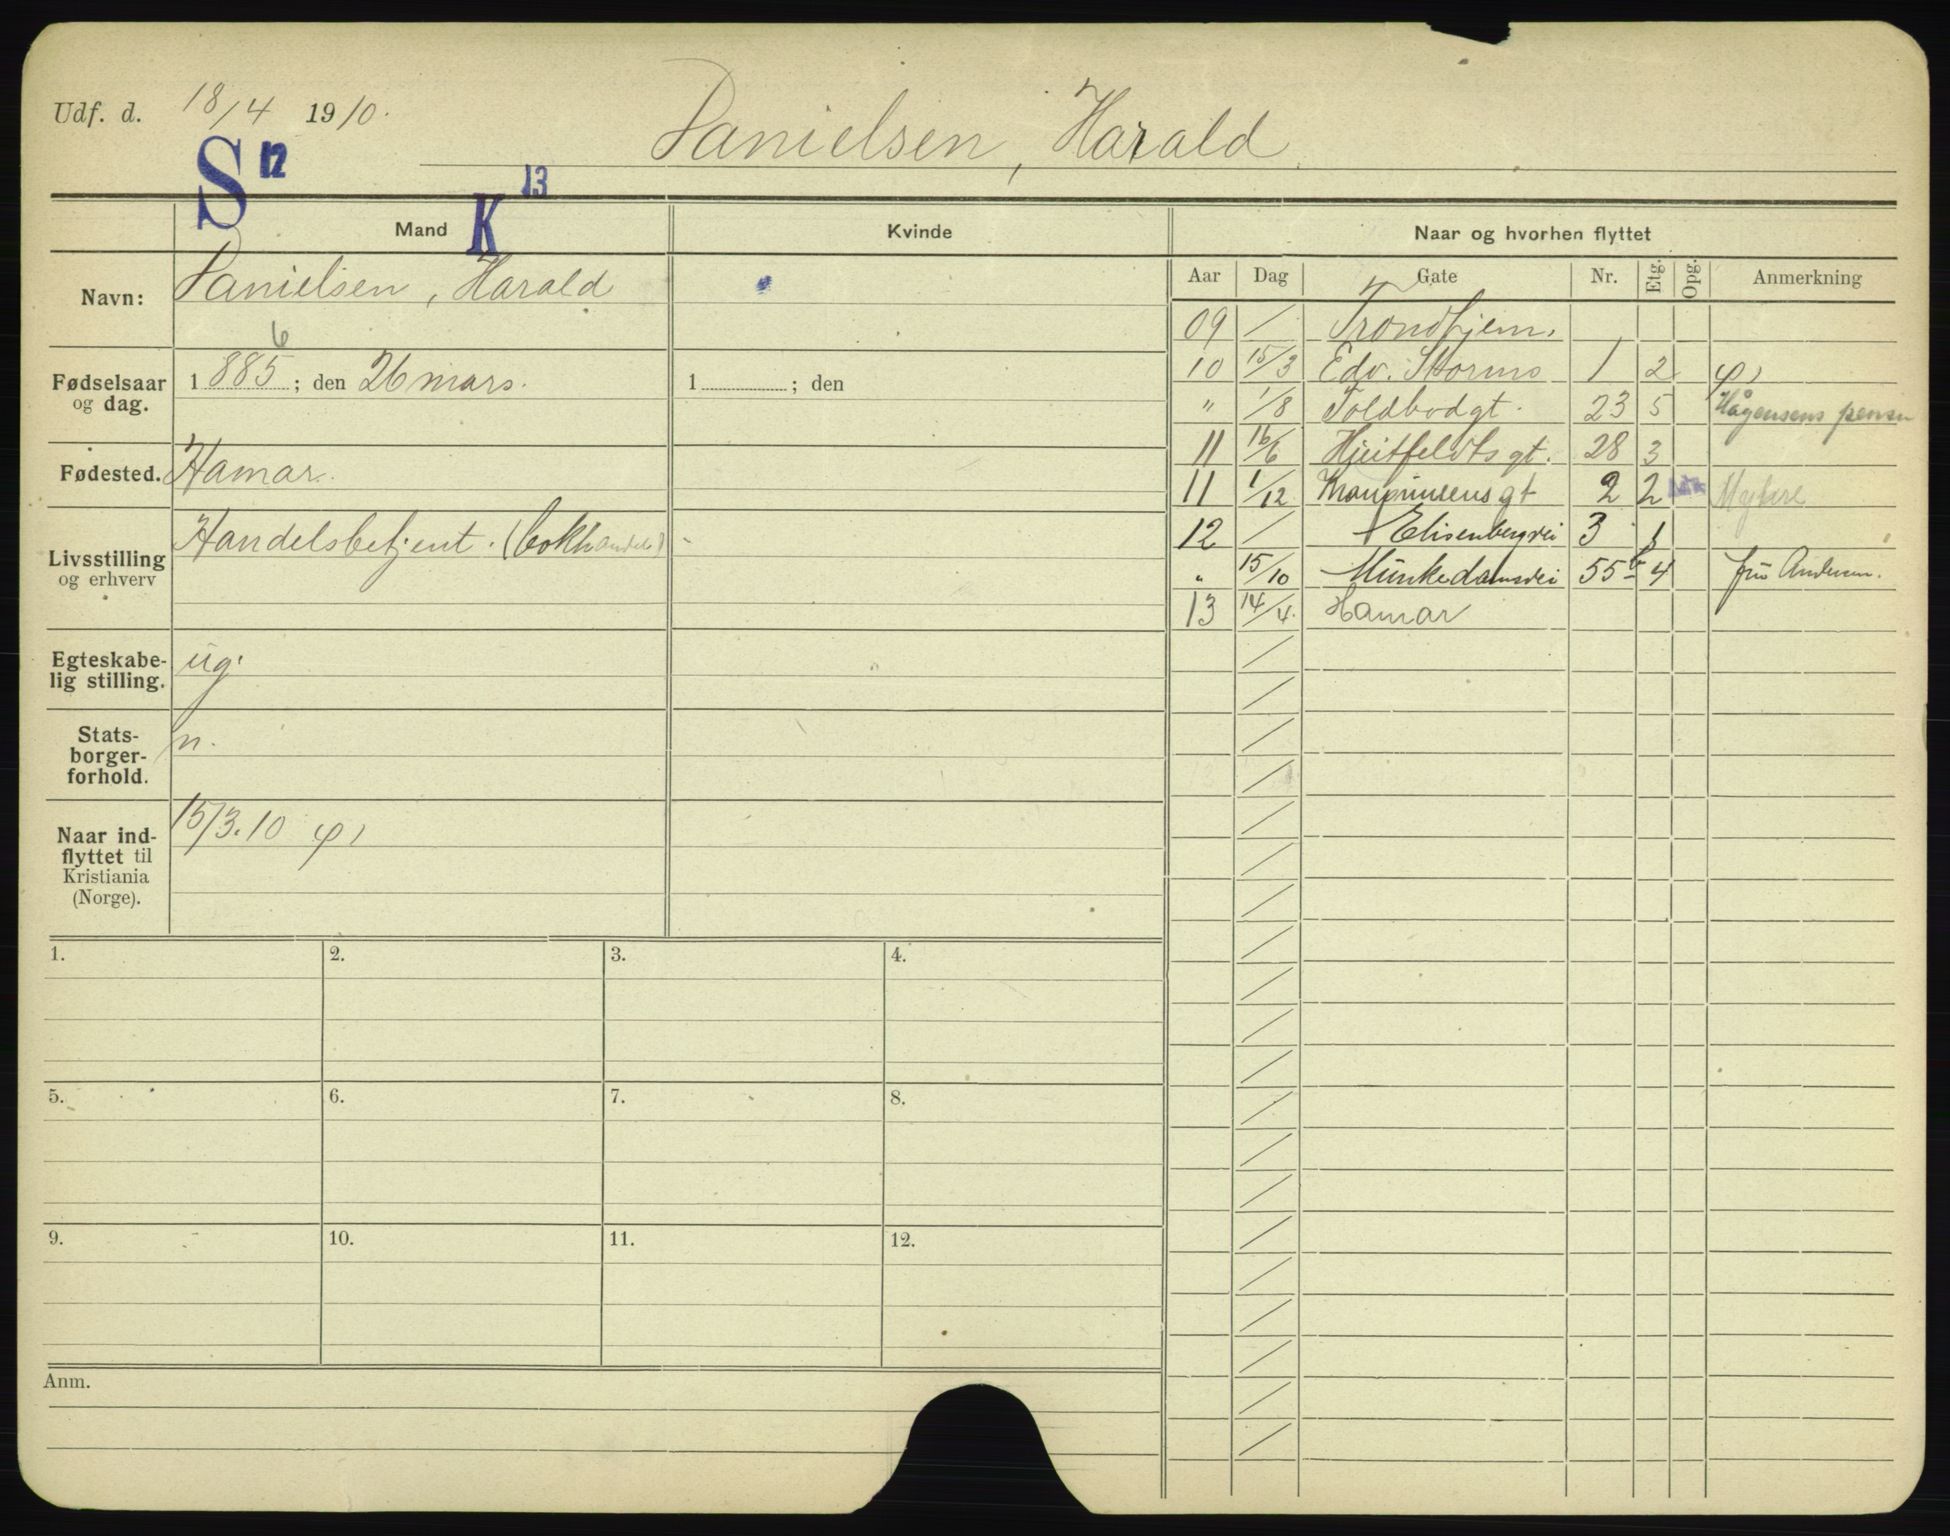 Udf. d. 18/4 1910.
Danielsen, Harald
S 12
K 13
Mand Kvinde Naar og hvorhen flyttet
Navn: Danielsen, Harald
Fødselsaar og dag. 1885 6; den 26 mars. 1 ; den
Fødested. Hamar.
Livsstilling og erhverv Handelsbetjent. (bokhandel)
Egteskabelig stilling. ug.
Statsborgerforhold. n.
Naar indflyttet til Kristiania (Norge). 15/3.10
1. 2. 3. 4.
5. 6. 7. 8.
9. 10. 11. 12.
Anm.
Aar Dag Gate Nr. Etg. Opg. Anmerkning
09 / Trondhjem.
10 15/3 Edv. Storms 1 2
" 1/8 Toldbodgt. 23 5 Hågensens pensn
11 16/6 Hjeitfeldtsgt. 28 3
11 1/12 2 2
12 / Elisenbergvei 3 1
" 15/10 Munkedamsvei 55b 4 fru Andersen.
13 14/4. Hamar